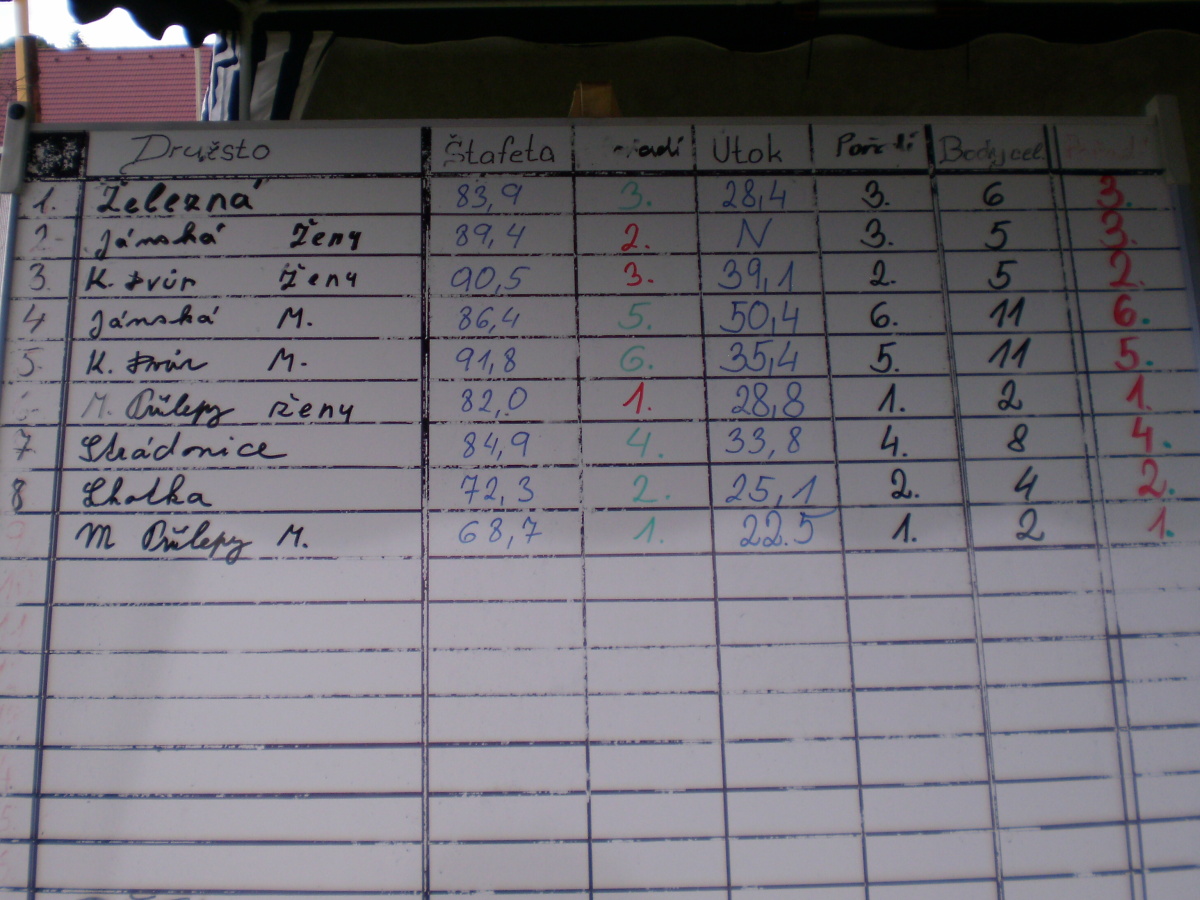 Družsto Štafeta Útok Pořadí Body cel. Pořadí
1. Železná 83,9 3. 28,4 3. 6 3.
2. Jánská ženy 89,4 2. N 3. 5 3.
3. K. Dvůr ženy 90,5 3. 39,1 2. 5 2.
4 Jánská M. 86,4 5. 50,4 6. 11 6.
5. K. Dvůr M. 91,8 6. 35,4 5. 11 5.
M. Průlepy ženy 82,0 1. 28,8 1. 2 1.
7 Strádonice 84,9 4. 33,8 4. 8 4.
8 Lhotka 72,3 2. 25,1 2. 4 2.
9 M Průlepy M. 68,7 1. 22.5 1. 2 1.